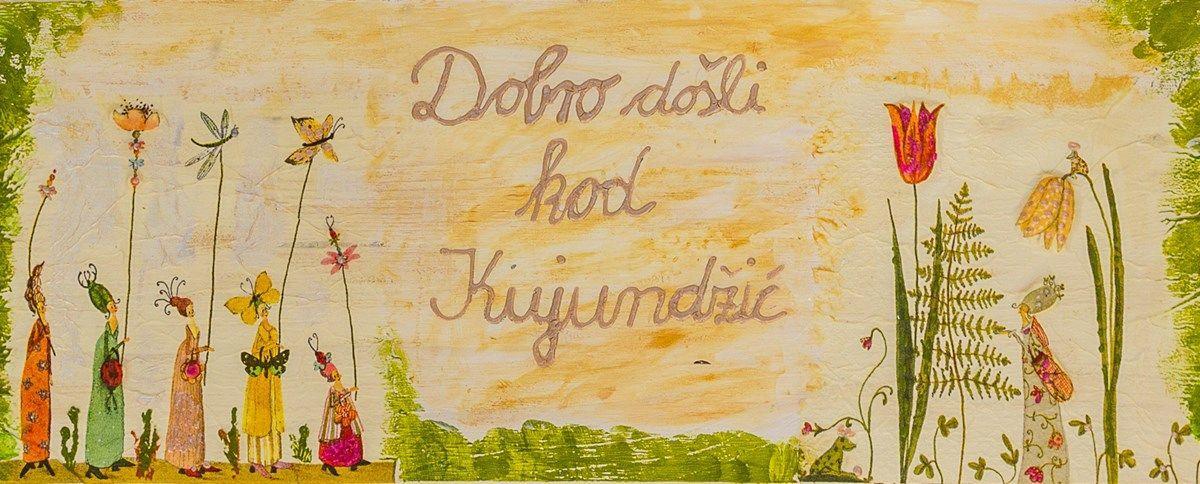 Dobro došli
kod
Kujundžić